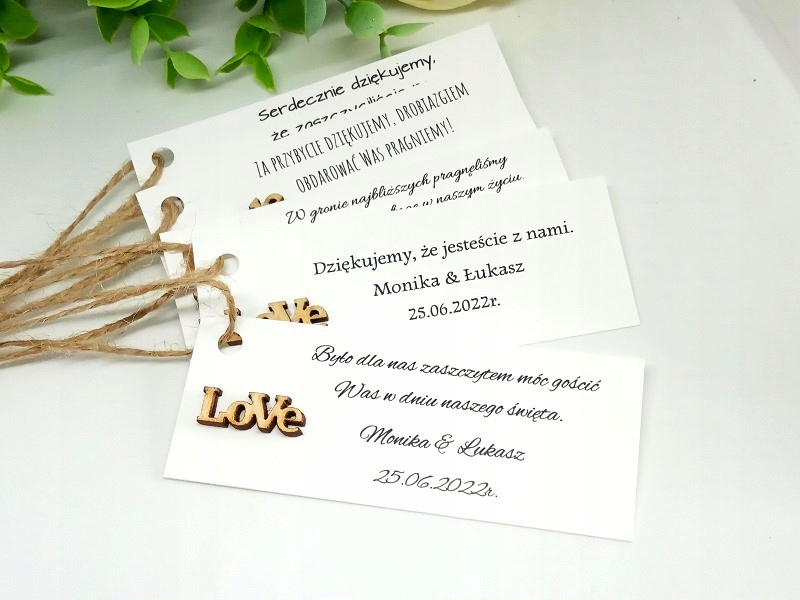 Serdecznie dziękujemy,
że zaszczyciliście
ZA PRZYBYCIE DZIĘKUJEMY, DROBIAZGIEM
OBDAROWAĆ WAS PRAGNIEMY!
W gronie najbliższych pragnęliśmy
w naszym życiu.
Dziękujemy, że jesteście z nami.
Monika & Łukasz
25.06.2022r.
LoVe
Było dla nas zaszczytem móc gościć
Was w dniu naszego święta.
Monika & Łukasz
25.06.2022r.
LoVe